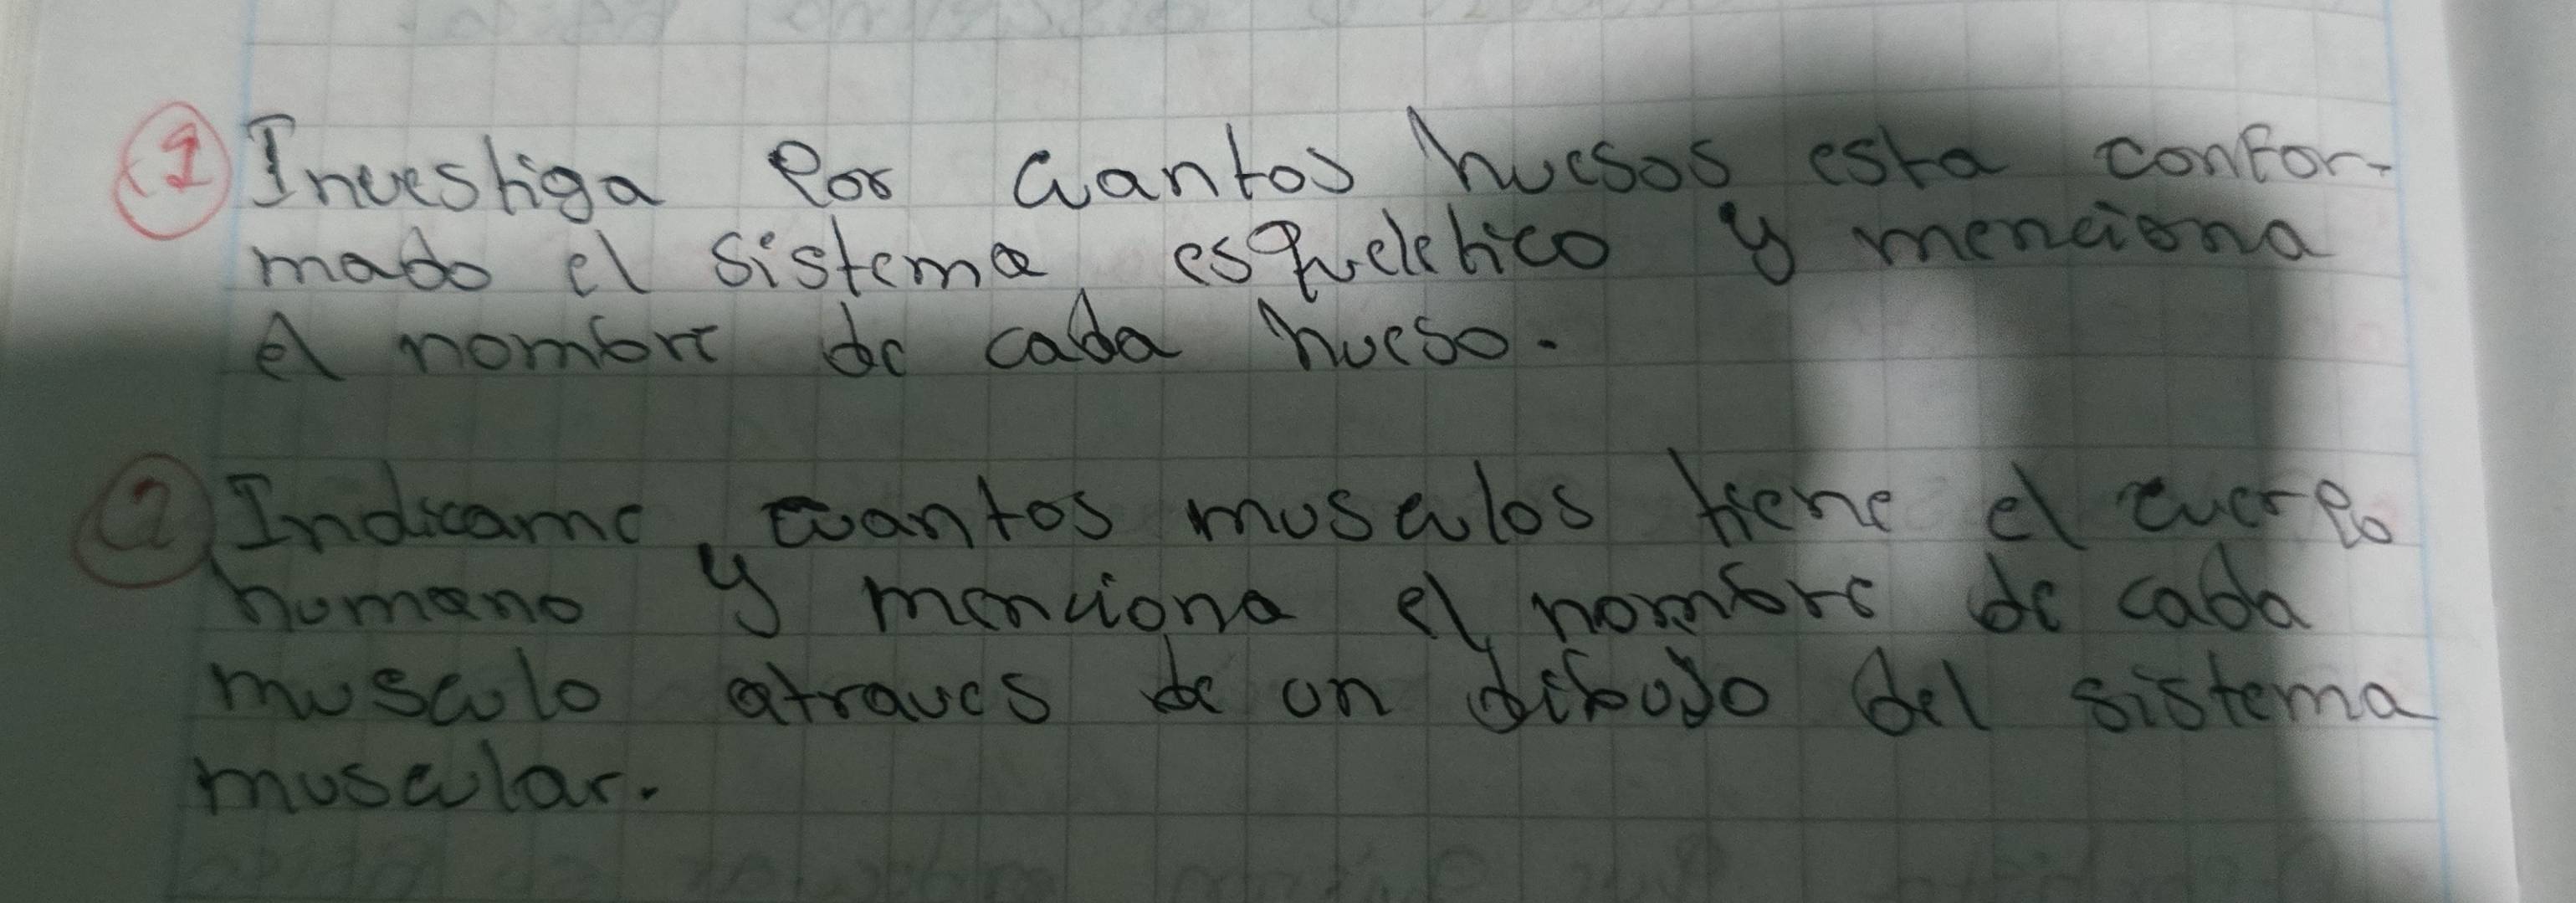 1 Investiga Por cuantos huesos esta confor-
mado el sistema esqueletico y menciona
el nombre de cada hueso.
2 Indicame cuantos musculos tiene el cuerpo
humano y menciona el nombre de cada
musculo atraves de un dibujo del sistema
muscular.